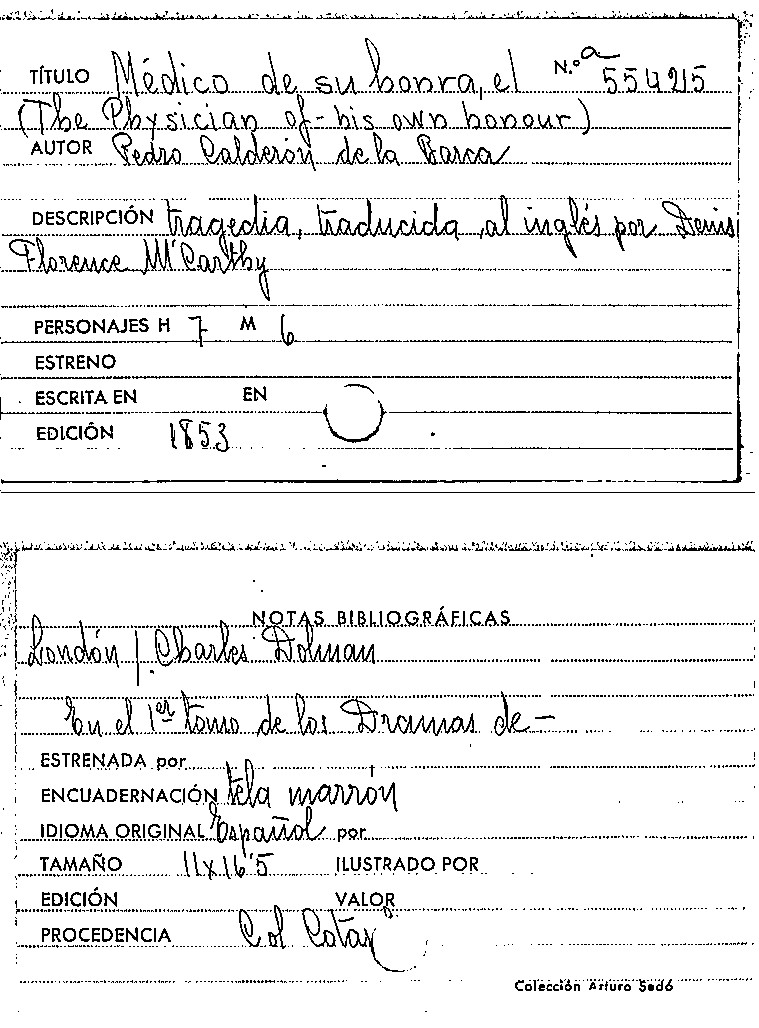 TÍTULO Médico de su honra, el N.º a 554215
(The Physician of his own honour)
AUTOR Pedro Calderón de la Barca
DESCRIPCIÓN tragedia, traducida al inglés por Denis
Florence M'Carthy
PERSONAJES H 7 M 6
ESTRENO
ESCRITA EN EN
EDICIÓN 1853
NOTAS BIBLIOGRÁFICAS
Londón / Charles Dolman
En el 1er tomo de los Dramas de-
ESTRENADA por
ENCUADERNACIÓN tela marrón
IDIOMA ORIGINAL Español por
TAMAÑO 11x16'5 ILUSTRADO POR
EDICIÓN VALOR
PROCEDENCIA Col
Colección Arturo Sedó